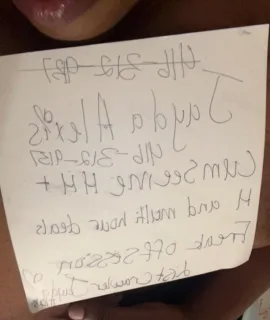 416-312-9157
Jayda Alexis
416-312-9157
Cum see me HH +
H and multi hour deals
Freak off session